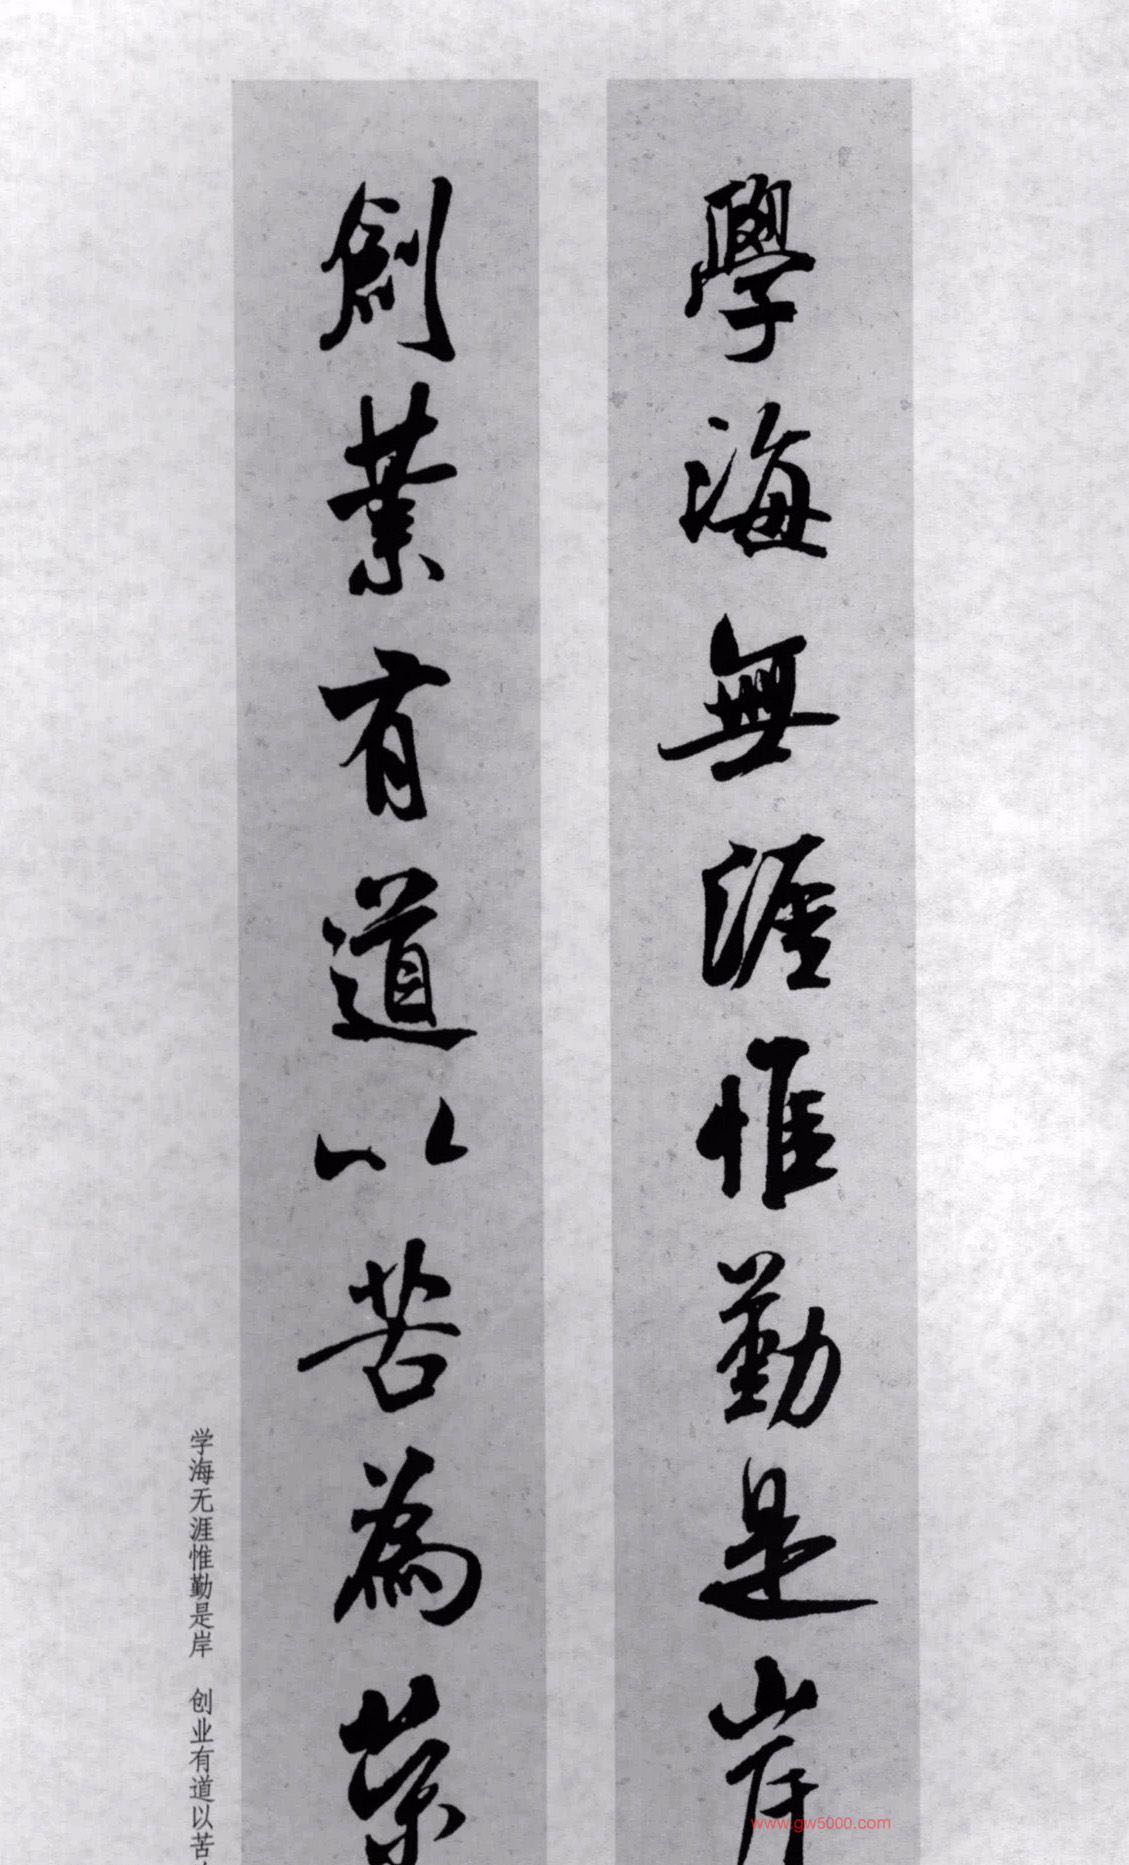 學海無涯惟勤是岸
創業有道以苦為榮
学海无涯惟勤是岸 创业有道以苦
www.gw5000.com